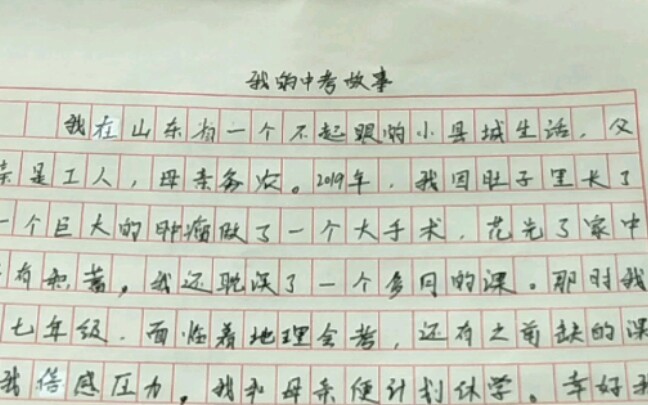 我的中考故事
我在山东省一个不起眼的小县城生活，父
亲是工人，母亲务农。2019年，我因肚子里长了
一个巨大的肿瘤做了一个大手术，花光了家中
有积蓄，我还耽误了一个多月的课。那时我
七年级，面临着地理会考，还有之前缺的课
我倍感压力，我和母亲便计划休学。幸好我